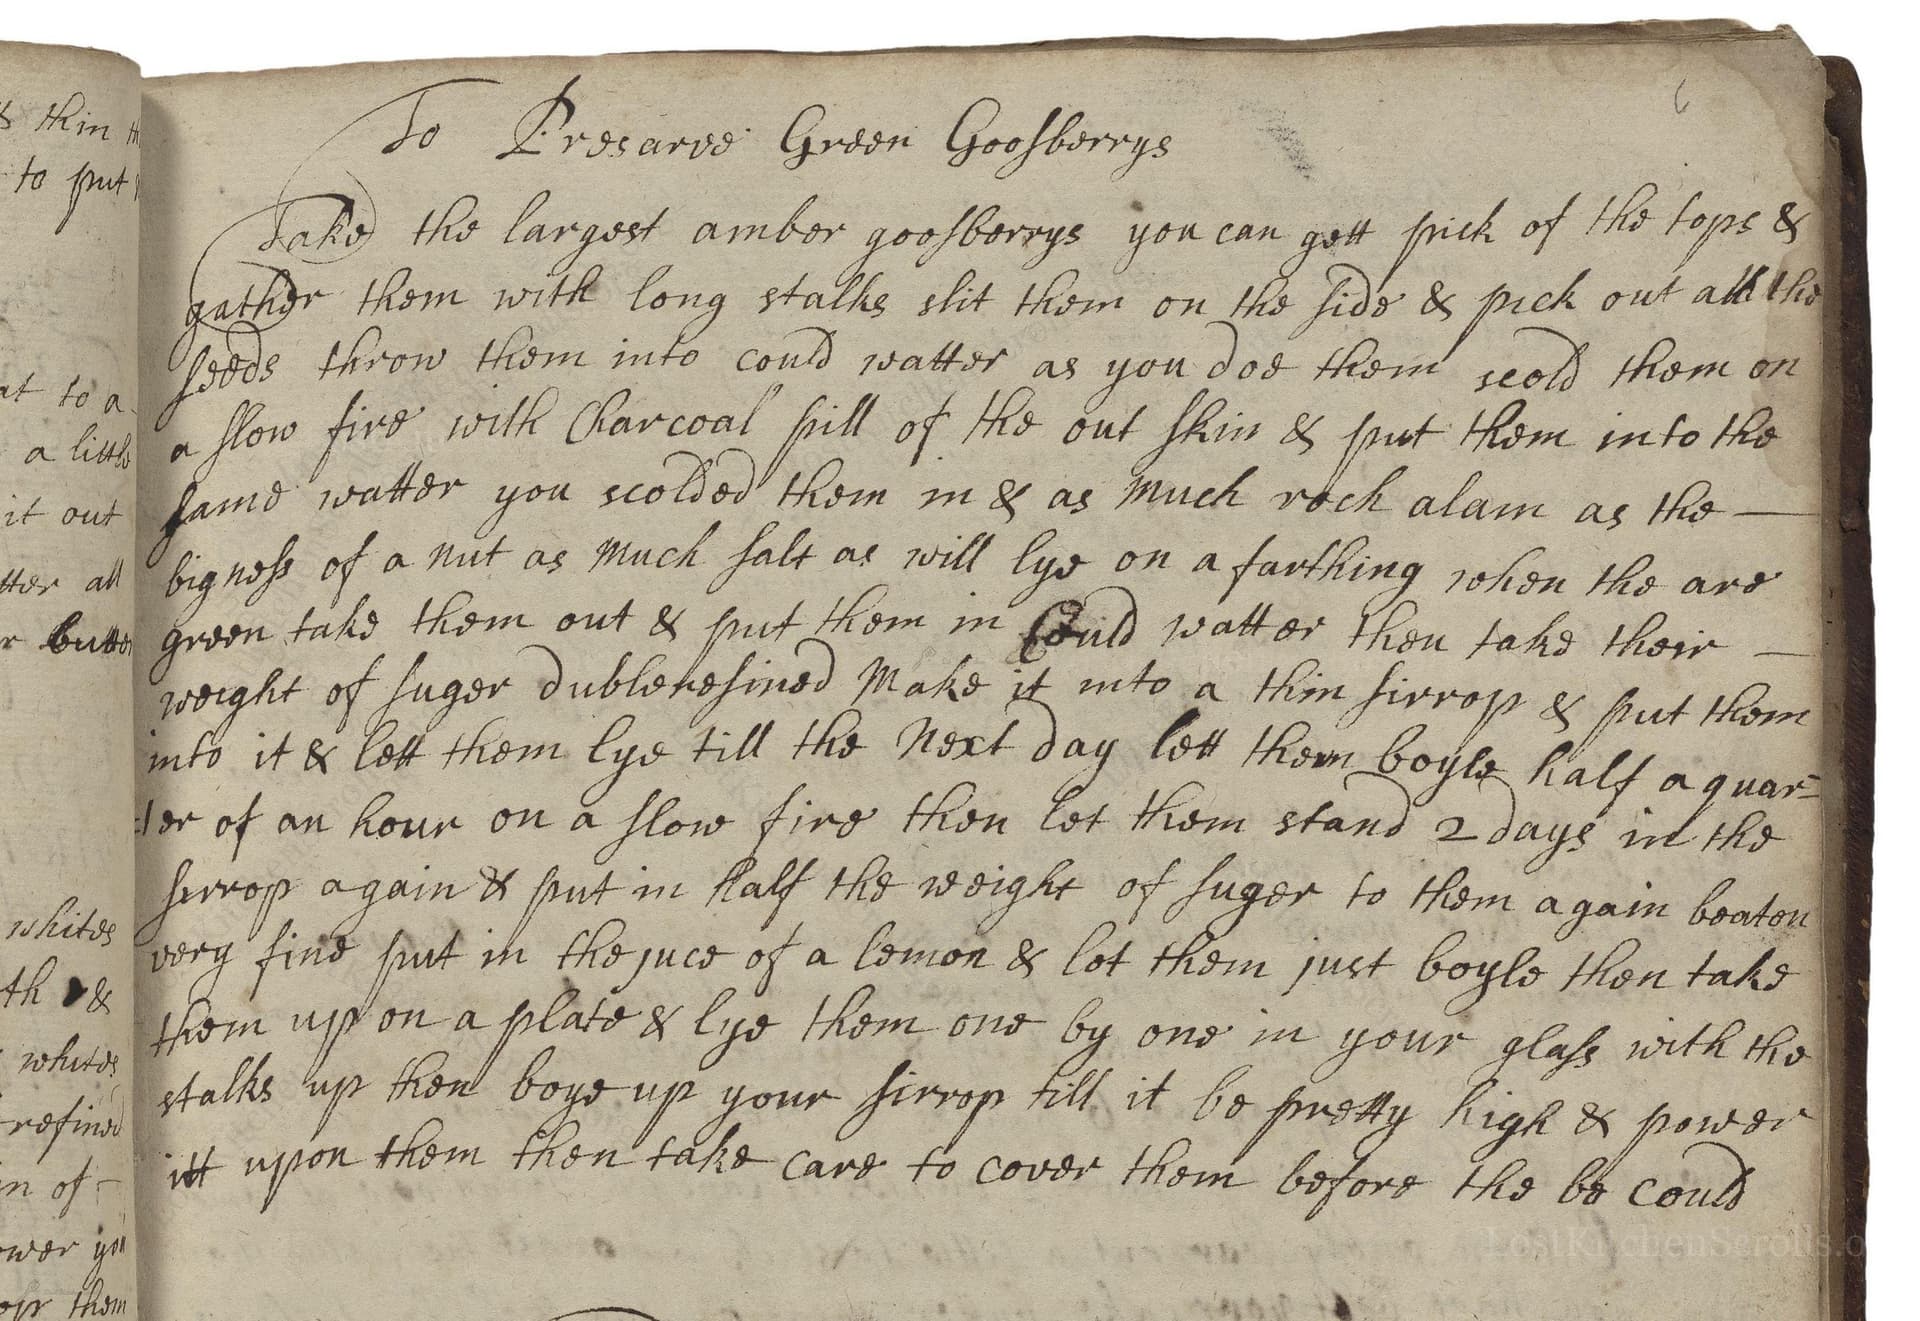 6
To Presarve Green Goosberrys
Take the largest amber goosberrys you can gett pick of the tops &
gather them with long stalks slit them on the side & pick out all the
seeds throw them into could watter as you doe them scold them on
a slow fire with Charcoal pill of the out skin & put them into the
same watter you scolded them in & as much roch alam as the —
bigness of a nut as much salt as will lye on a farthing when the are
green take them out & put them in Could watter then take their —
weight of suger dublerefined Make it into a thin sirrop & put them
into it & lett them lye till the Next day lett them boyle half a quar=
=ter of an hour on a slow fire then let them stand 2 days in the
sirrop again & put in half the weight of suger to them again beaten
very fine put in the juce of a lemon & let them just boyle then take
them up on a plate & lye them one by one in your glass with the
stalks up then boye up your sirrop till it be pretty high & power
itt upon them then take care to cover them before the be could
thin
to put
to a
a little
it out
all
butter
whites
th &
whites
refined
in of —
you
them
LostKitchenScrolls.o